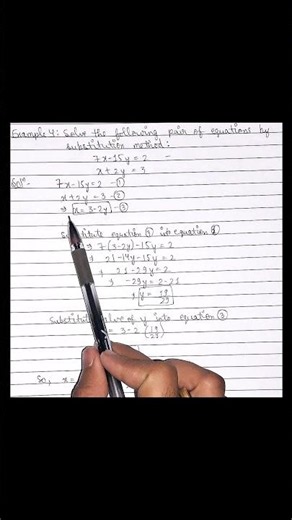 Example 4: Solve the following pair of equations by
substitution method:
7x-15y=2
x+2y=3
Solⁿ- 7x-15y=2 -①
x+2y=3 -②
⇒ x=3-2y -③
Substitute equation ③ into equation
⇒ 7(3-2y)-15y=2
21-14y-15y=2
21-29y=2
-29y=2-21
y=19/29
Substitute value of y into equation ③
= 3-2(19/29)
So, x=